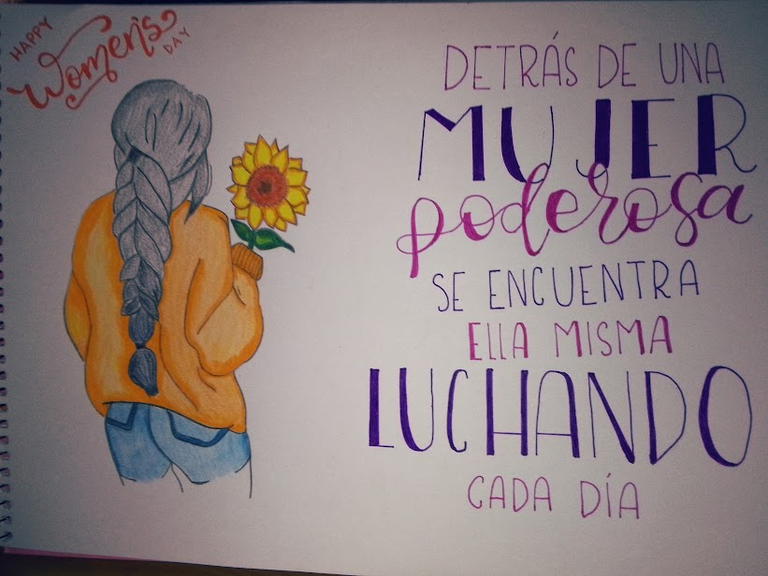 HAPPY
Women's
DAY
DETRÁS DE UNA
MUJER
poderosa
SE ENCUENTRA
ELLA MISMA
LUCHANDO
CADA DÍA